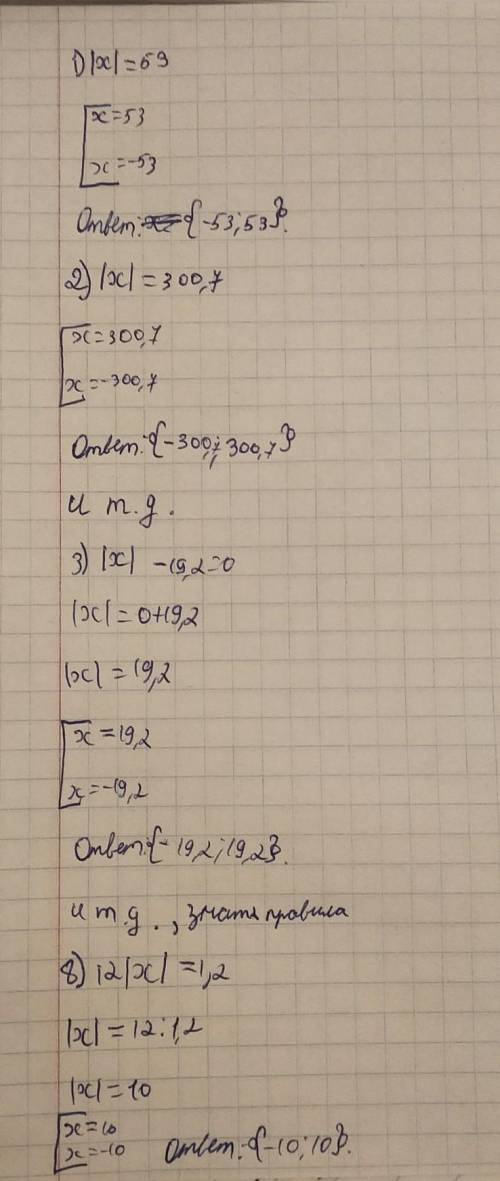 1) |x| = 53
x = 53
x = -53
Ответ: {-53; 53}.
2) |x| = 300,7
x = 300,7
x = -300,7
Ответ: {-300,7; 300,7}
и т.д.
3) |x| - 19,2 = 0
|x| = 0+19,2
|x| = 19,2
x = 19,2
x = -19,2
Ответ: {-19,2; 19,2}.
и т.д., знать правила
8) 12|x| = 1,2
|x| = 12:1,2
|x| = 10
x = 10
x = -10 Ответ: {-10; 10}.